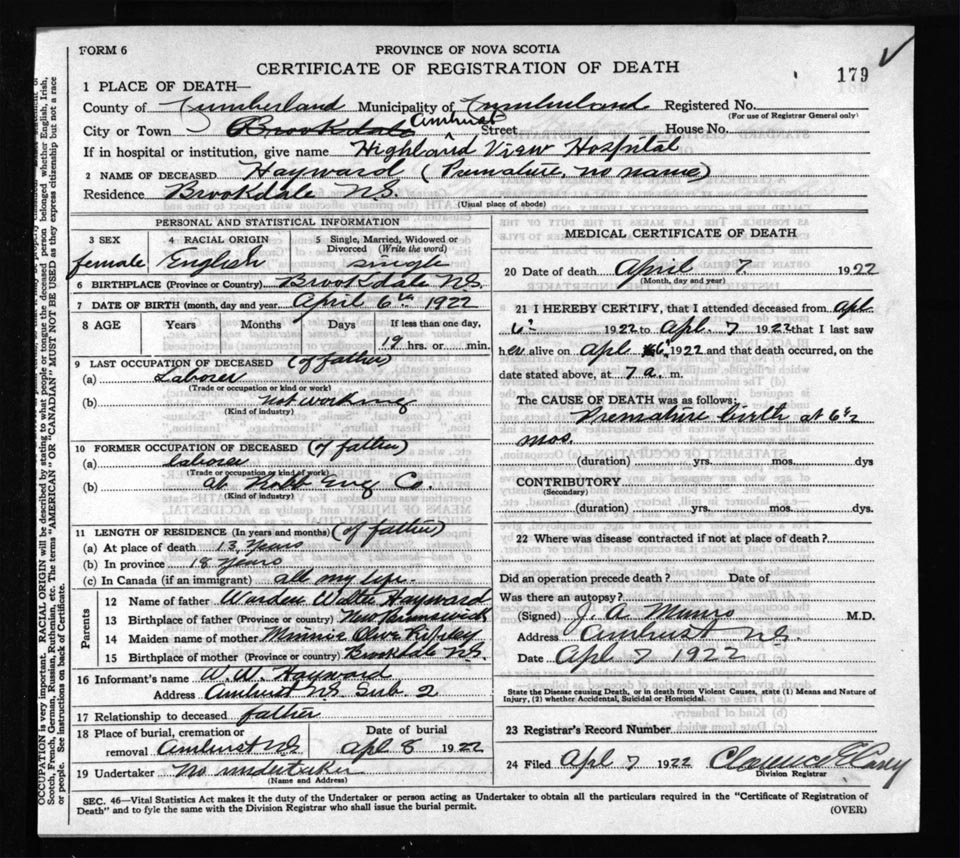 FORM 6
PROVINCE OF NOVA SCOTIA
CERTIFICATE OF REGISTRATION OF DEATH
179
1 PLACE OF DEATH—
County of Cumberland Municipality of Cumberland Registered No.
(For use of Registrar General only)
City or Town Brookdale Amherst Street House No.
If in hospital or institution, give name Highland View Hospital
2 NAME OF DECEASED Hayward (Premature, no name)
Residence Brookdale N.S.
(Usual place of abode)
PERSONAL AND STATISTICAL INFORMATION
3 SEX 4 RACIAL ORIGIN 5 Single, Married, Widowed or Divorced (Write the word)
female English single
6 BIRTHPLACE (Province or Country) Brookdale N.S.
7 DATE OF BIRTH (month, day and year) April 6th 1922
8 AGE Years Months Days If less than one day,
19 hrs. or min.
9 LAST OCCUPATION OF DECEASED (of father)
(a) Laborer
(Trade or occupation or kind or work)
(b) not working
(Kind of industry)
10 FORMER OCCUPATION OF DECEASED (of father)
(a) Laborer
(Trade or occupation or kind of work)
(b) at Robb Eng Co.
(Kind of industry)
11 LENGTH OF RESIDENCE (In years and months) (of father)
(a) At place of death 13 years
(b) In province 18 years
(c) In Canada (if an immigrant) all my life.
Parents
12 Name of father Warden Walter Hayward
13 Birthplace of father (Province or country) New Brunswick
14 Maiden name of mother Minnie Olive Ripley
15 Birthplace of mother (Province or country) Brookdale N.S.
16 Informant's name W. W. Hayward
Address Amherst NS Sub. 2
17 Relationship to deceased father
18 Place of burial, cremation or Date of burial
removal Amherst N.S. Apl 8 1922
19 Undertaker No undertaker
(Name and Address)
MEDICAL CERTIFICATE OF DEATH
20 Date of death April 7 1922
(Month, day and year)
21 I HEREBY CERTIFY, that I attended deceased from Apl.
6th 1922 to Apl. 7 1922 that I last saw
her alive on Apl 6 1922 and that death occurred, on the
date stated above, at 7 a. m.
The CAUSE OF DEATH was as follows:
Premature birth at 6½
mos.
(duration) yrs. mos. dys
CONTRIBUTORY
(Secondary)
(duration) yrs. mos. dys.
22 Where was disease contracted if not at place of death?
Did an operation precede death? Date of
Was there an autopsy?
(Signed) J. A. Munro M.D.
Address Amherst N.S.
Date Apl 7 1922
State the Disease causing Death, or in death from Violent Causes, state (1) Means and Nature of
Injury, (2) whether Accidental, Suicidal or Homicidal.
23 Registrar's Record Number
24 Filed Apl 7 1922
Division Registrar
SEC. 46—Vital Statistics Act makes it the duty of the Undertaker or person acting as Undertaker to obtain all the particulars required in the "Certificate of Registration of
Death" and to fyle the same with the Division Registrar who shall issue the burial permit.
(OVER)
OCCUPATION is very important. RACIAL ORIGIN will be described by stating to what people or tongue the deceased person belonged whether English, Irish,
Scotch, French, German, Russian, Ruthenian, etc. The terms "AMERICAN" OR "CANADIAN" MUST NOT BE USED as they express citizenship but not a race
or people. See instructions on back of Certificate.